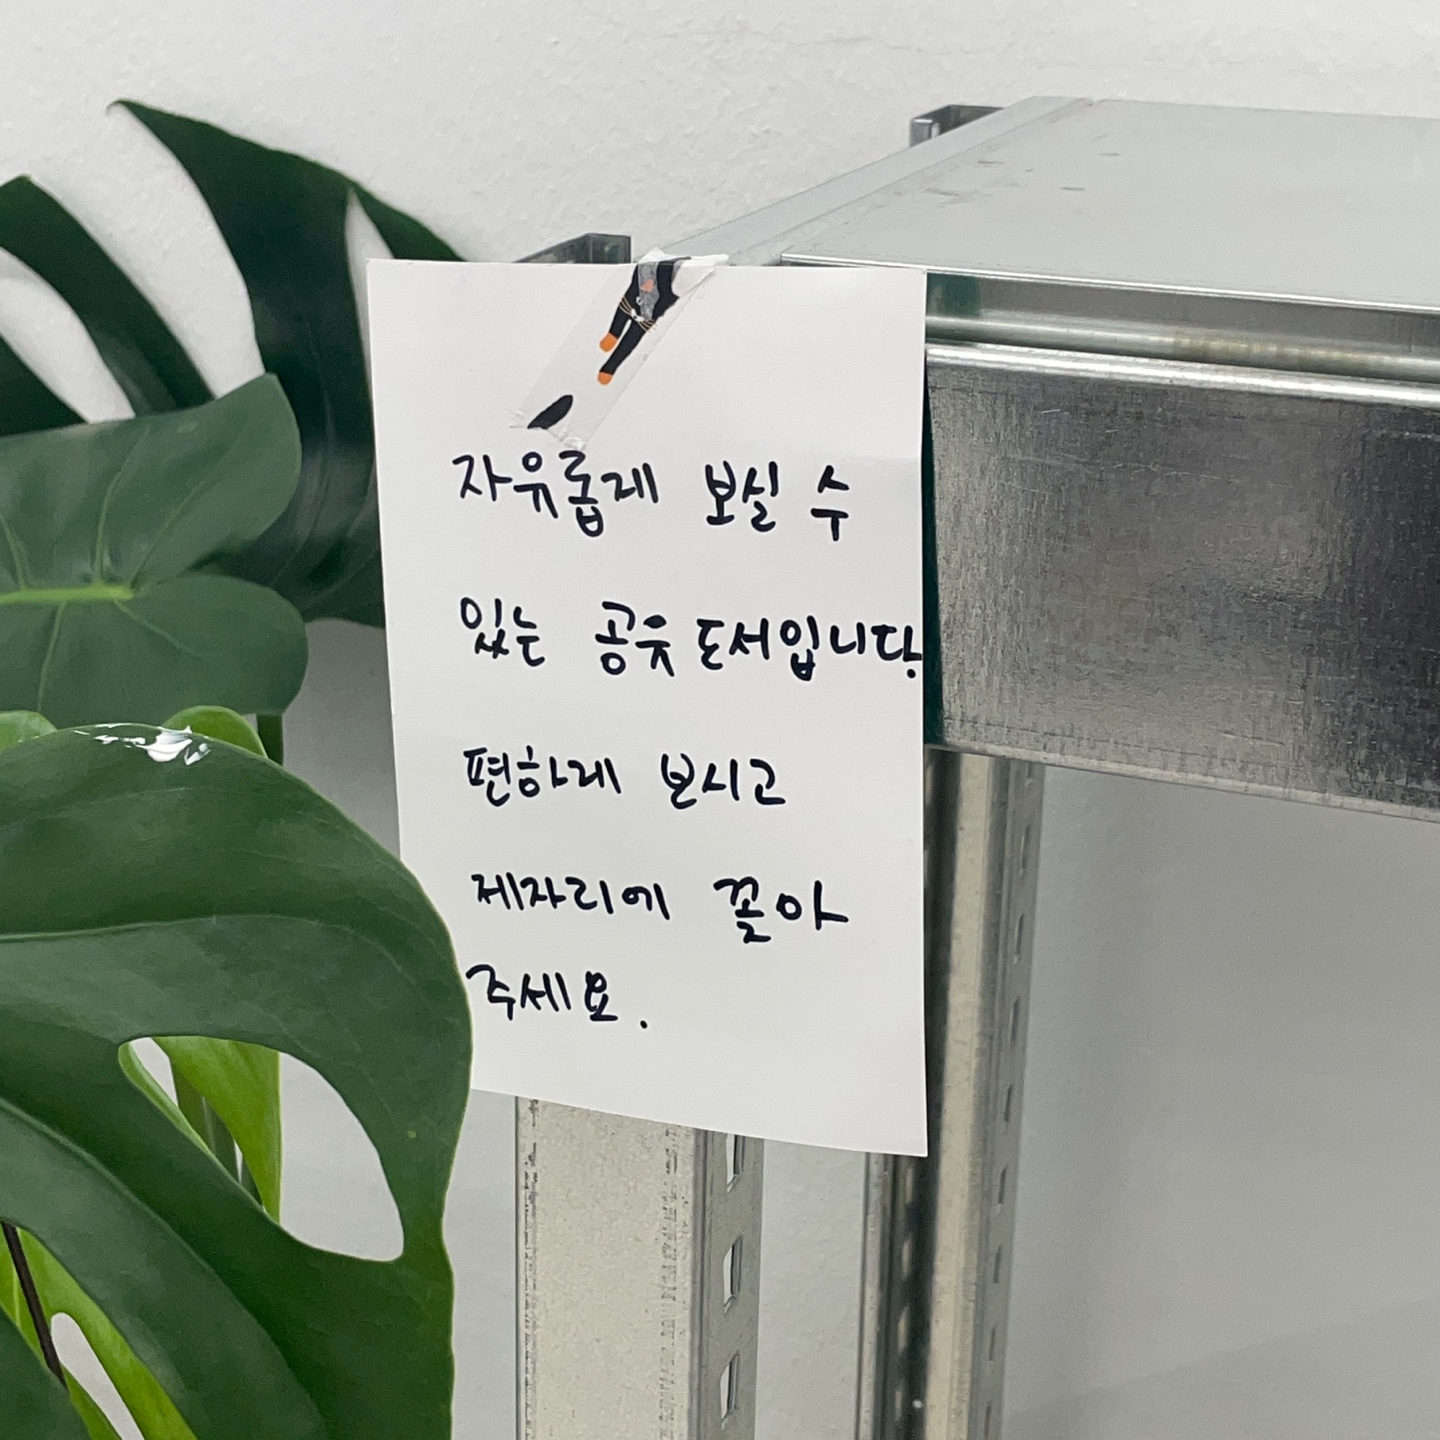 자유롭게 보실 수
있는 공유 도서입니다.
편하게 보시고
제자리에 꽂아
주세요.